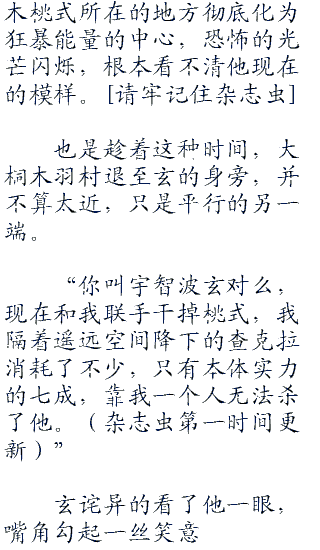 木桃式所在的地方彻底化为
狂暴能量的中心，恐怖的光
芒闪烁，根本看不清他现在
的模样。[请牢记住杂志虫]
也是趁着这种时间，大
桐木羽村退至玄的身旁，并
不算太近，只是平行的另一
端。
“你叫宇智波玄对么，
现在和我联手干掉桃式，我
隔着遥远空间降下的查克拉
消耗了不少，只有本体实力
的七成，靠我一个人无法杀
了他。（杂志虫第一时间更
新）”
玄诧异的看了他一眼，
嘴角勾起一丝笑意